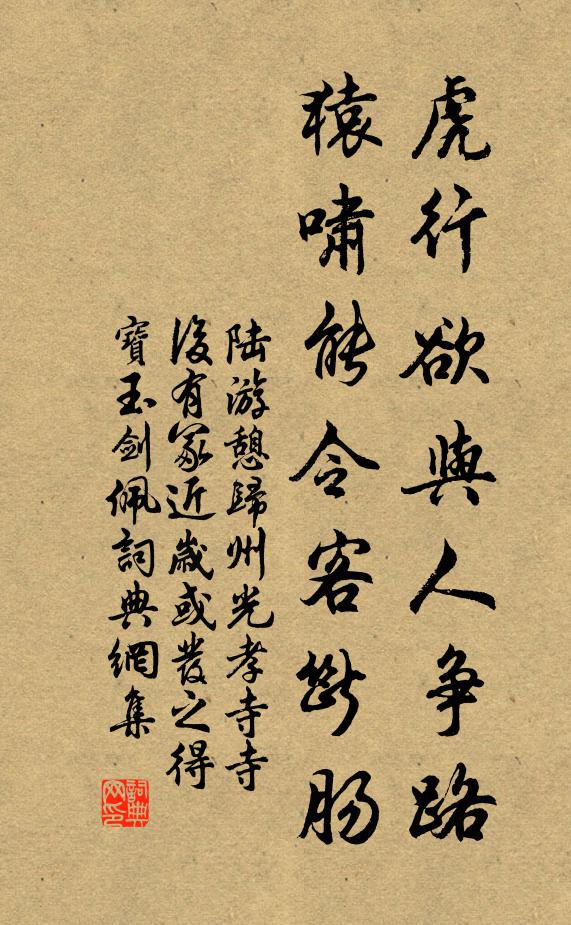 虎行欲與人争路
猿嘯能令客斷肠
陆游憩歸州光孝寺寺
後有冢近歲或發之得
寶玉劍佩詞典網集
詞典
网印